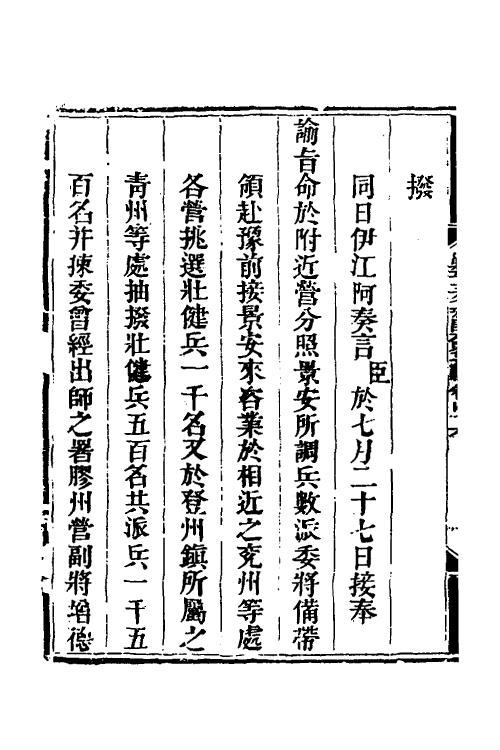 撥
同日伊江阿奏言臣於七月二十七日接奉
諭旨命於附近營分照景安所調兵數派委將備帶
領赴豫前接景安來咨業於相近之兖州等處
各營挑選壯健兵一千名又於登州鎮所屬之
青州等處抽撥壯健兵五百名共派兵一千五
百名并揀委曾經出師之署膠州營副將 德